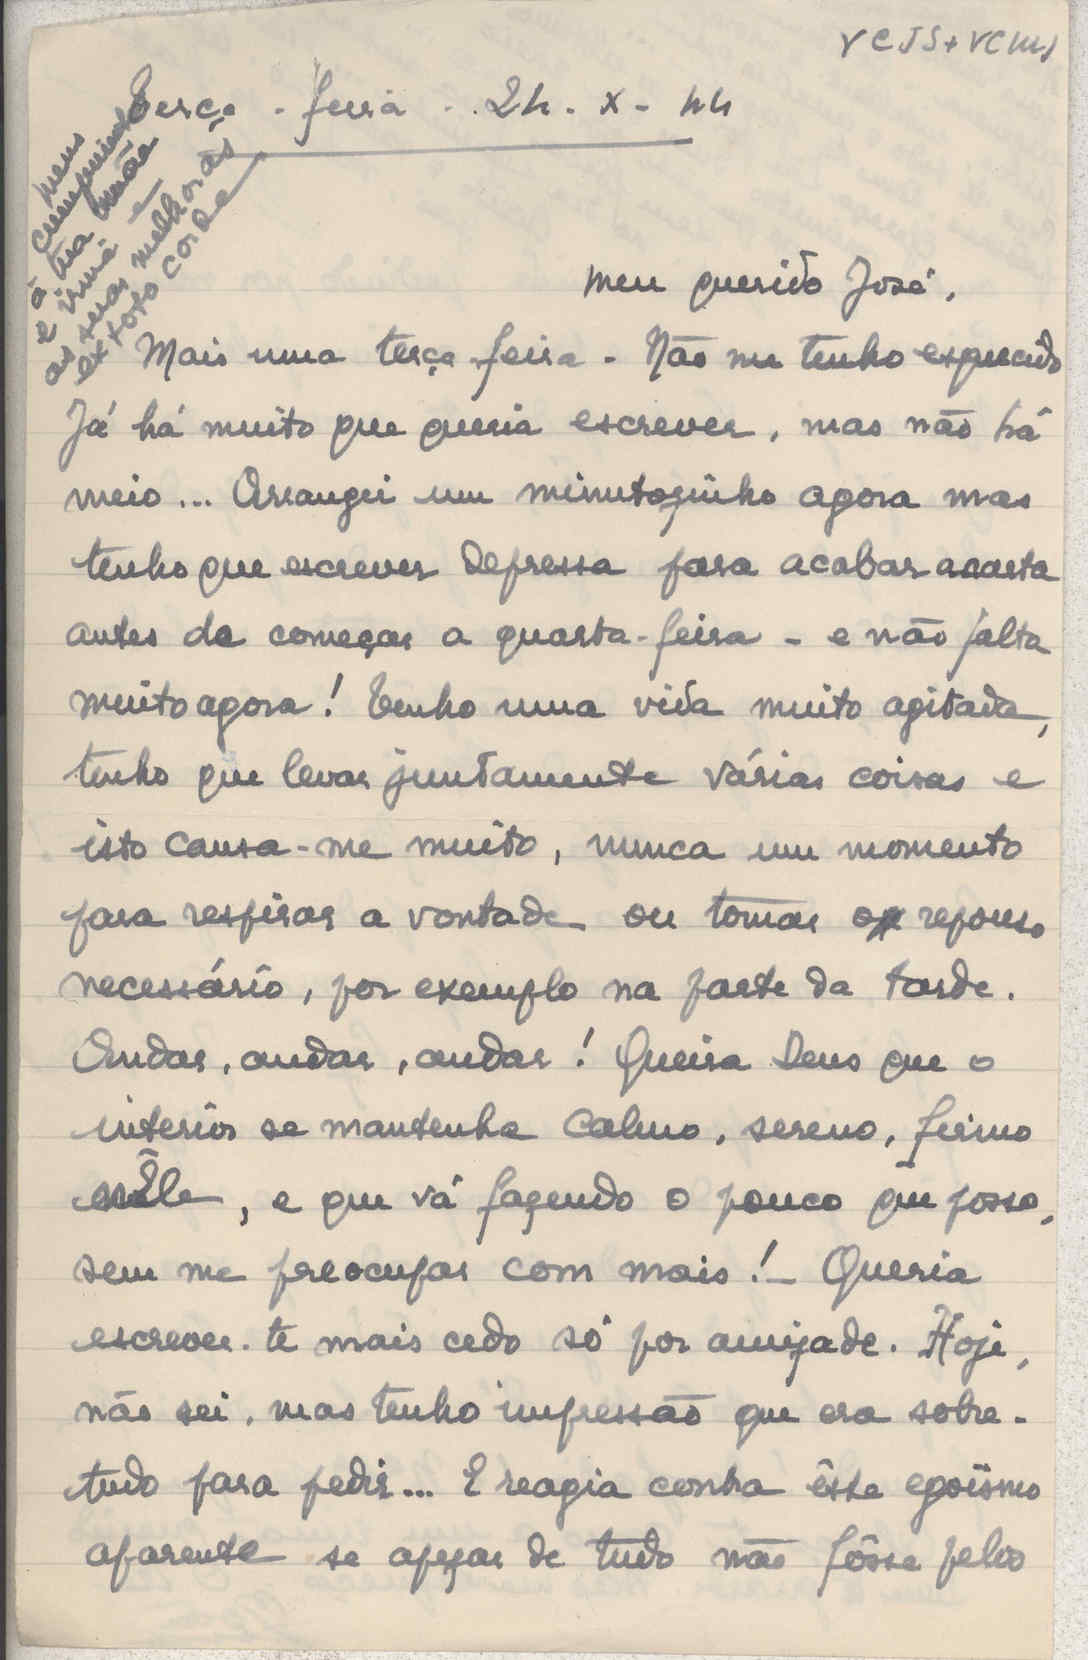 VCJS+VCMS
Terça-feira - 24-X-44
meus
cumprimentos
à tua mãe
e irmã e
as suas melhoras
ex toto corde
Meu querido José,
Mais uma terça-feira - Não me tenho esquecido
Já há muito que queria escrever, mas não há
meio... Arrangei um minutozinho agora mas
tenho que escrever depressa para acabar a carta
antes de começar a quarta-feira - e não falta
muito agora! Tenho uma vida muito agitada,
tenho que levar juntamente várias coisas e
isto causa-me muito, nunca um momento
para respirar a vontade - ou tomar o repouso
necessário, por exemplo na parte da tarde.
Andar, andar, andar! Queira Deus que o
interior se mantenha calmo, sereno, firme
nÊle, e que vá fazendo o pouco que posso,
sem me preocupar com mais! - Queria
escrever-te mais cedo só por amizade. Hoje,
não sei, mas tenho impressão que era sobre-
tudo para pedir... E reagia contra êsse egoïsmo
aparente se apezar de tudo não fôsse pelo